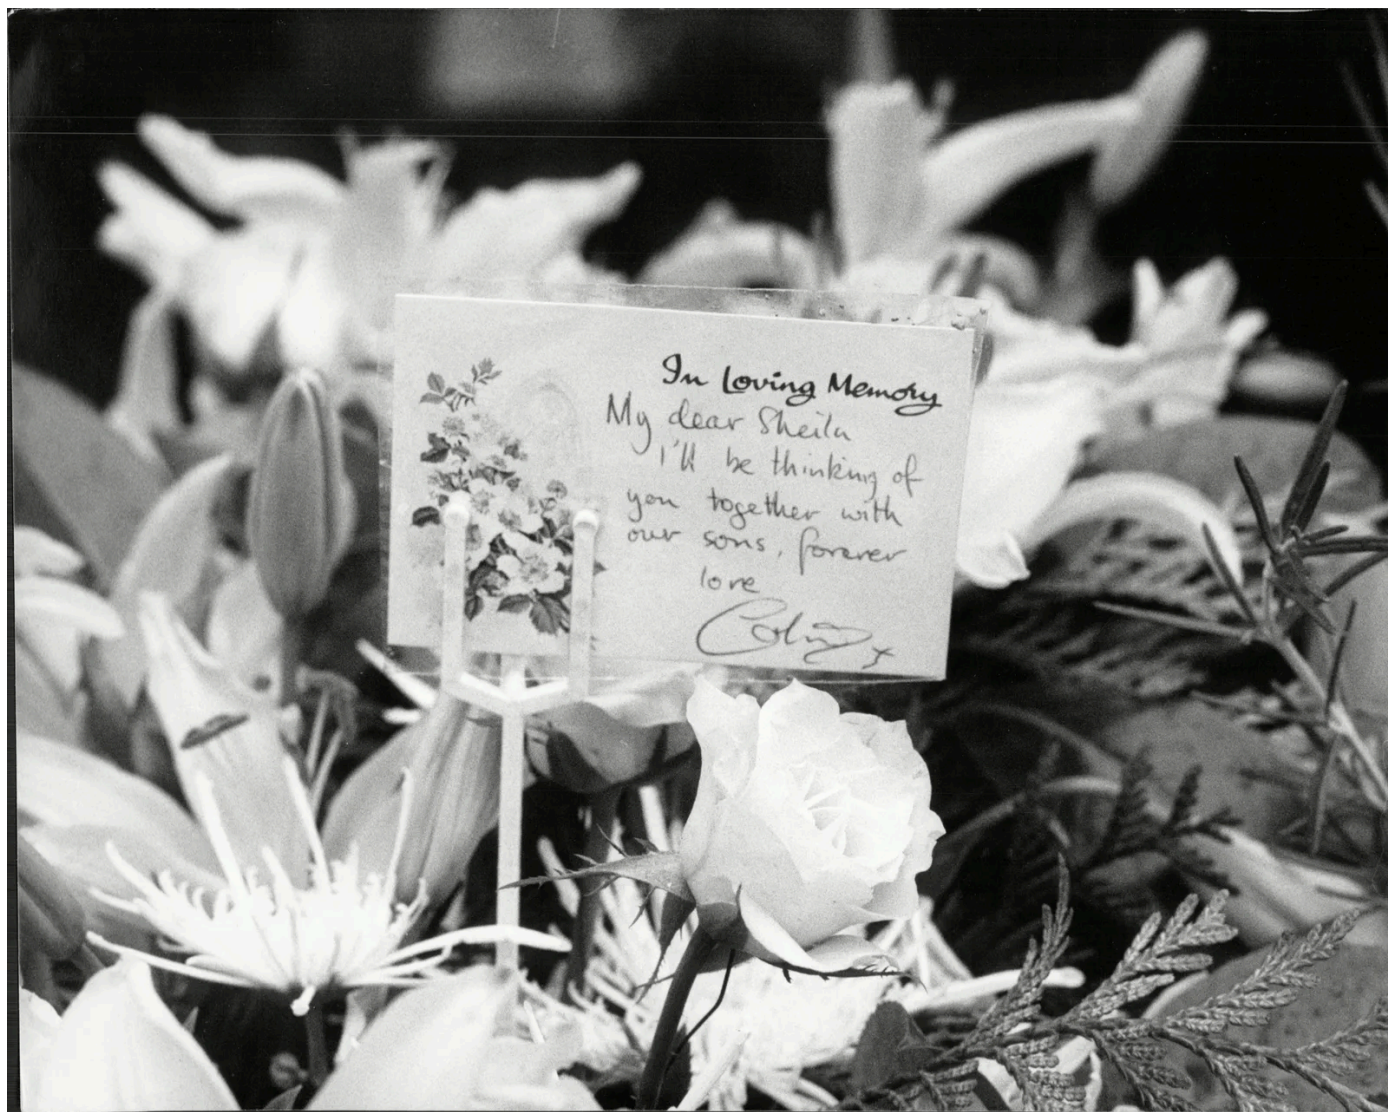 In Loving Memory
My dear Sheila
I'll be thinking of
you together with
our sons, forever
love
Colin x